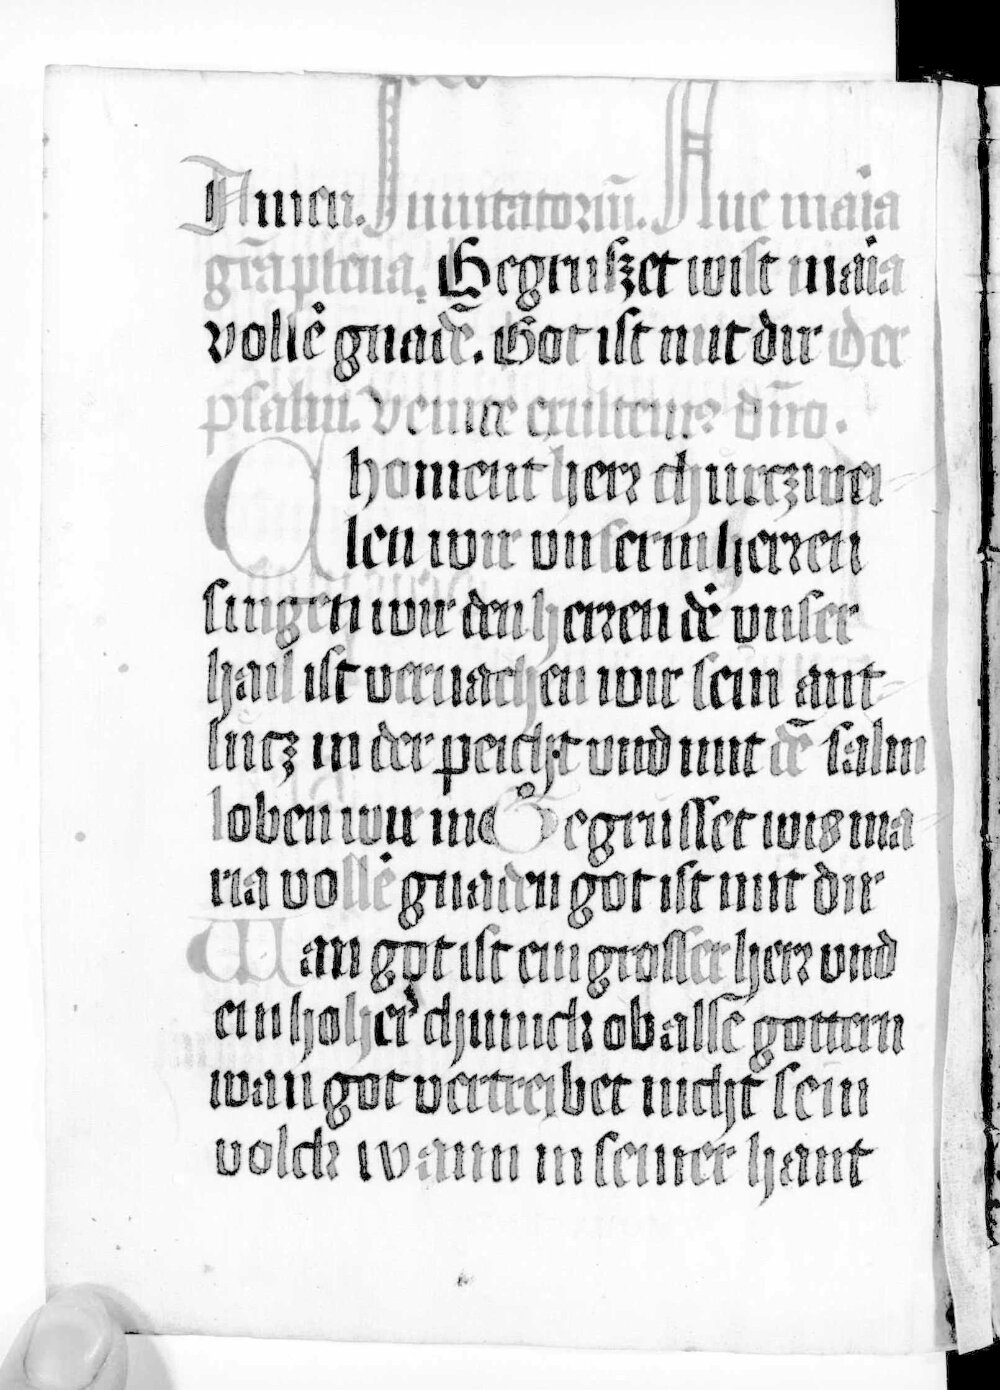 Amen. Inuitatoriū. Aue maia
grā plena. Gegruszet wist maia
vollē gnadē. Got ist mit dir Der
psalm. Venite exultemꝰ dn̄o.
Choment herꝛ churczwei-
len wir vnserm herren
singen wir den herren dē vnser
hail ist vernachen wir sein ant-
lucz in der peicht vnd mit dē salm
loben wir in Gegrüsset wis ma-
ria vollē gnaden got ist mit dir
Wan got ist ein grosser herꝛ vnd
ein hoher chunick ob allē gottern
wan got vertreibet nicht sein
volck wann in seiner hant